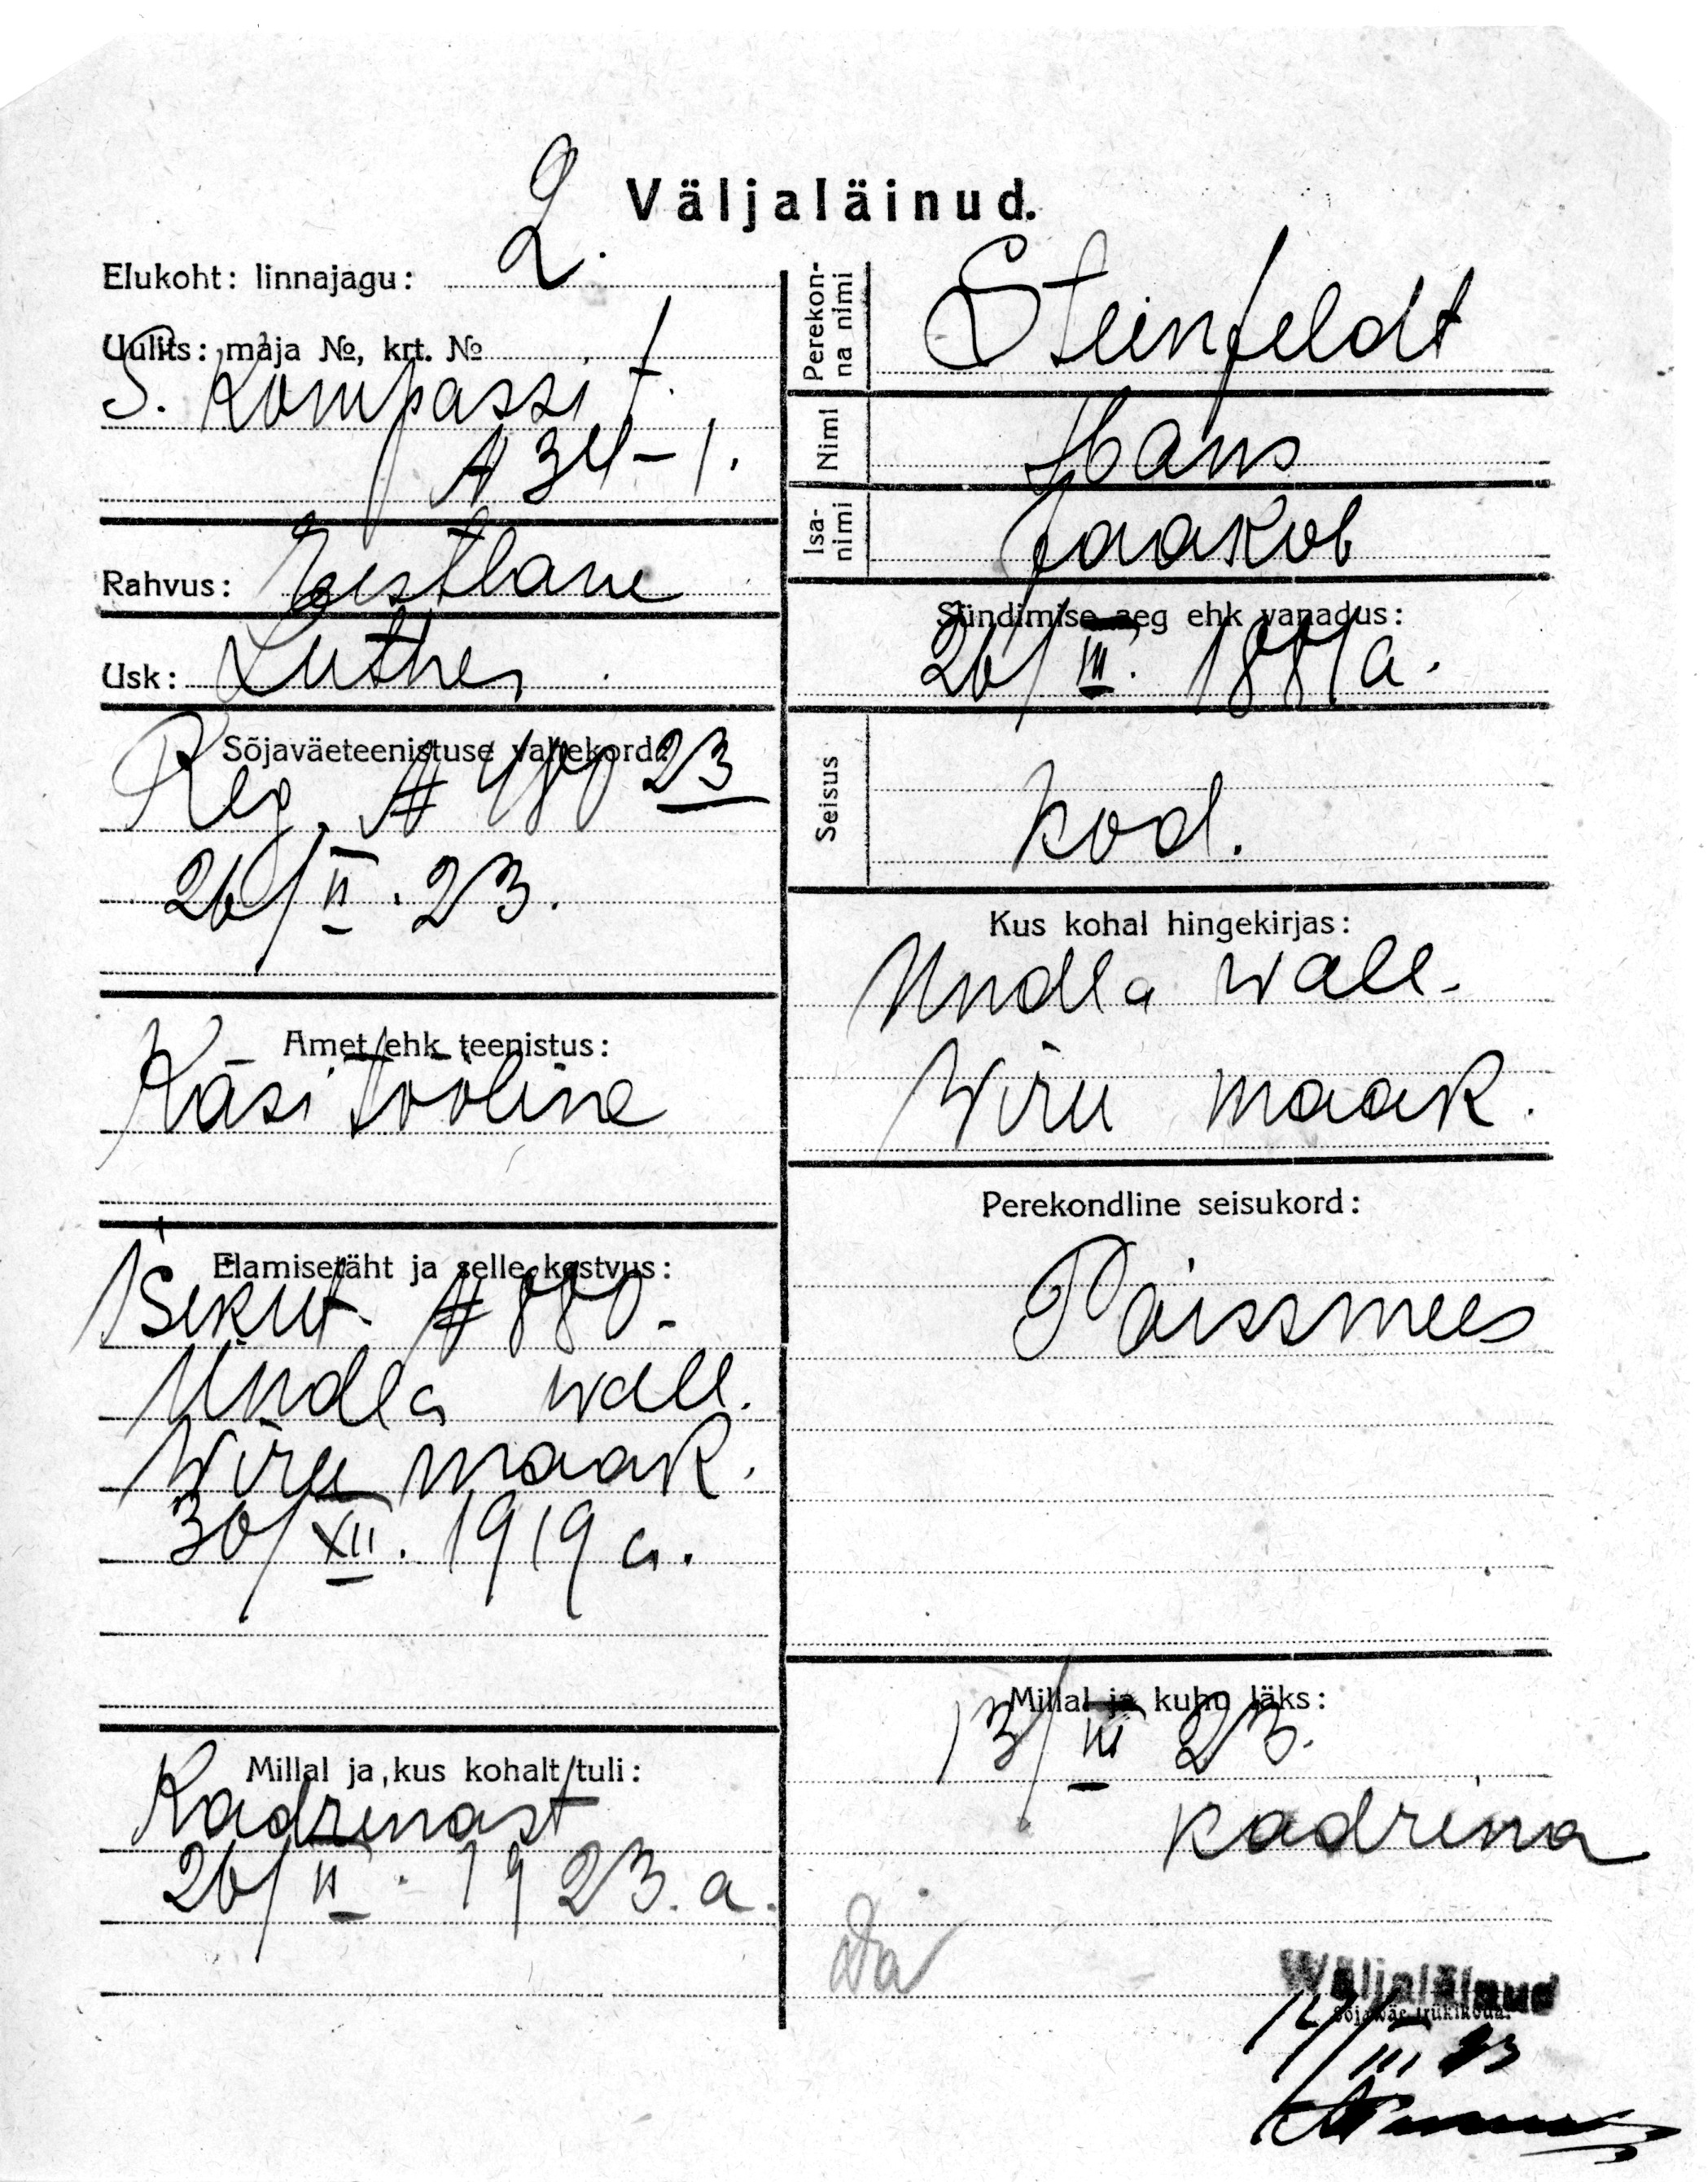 Väljaläinud.
Elukoht: linnajagu: 2.
Uulits: maja №, krt. №
S. Kompassi t.
№ 34-1.
Rahvus: Eestlane
Usk: Luther
Sõjaväeteenistuse vahekord:
Reg. № 480 23
26/II. 23.
Amet ehk teenistus:
Käsitööline
Elamisetäht ja selle kestvus:
Isikut. № 880.
Undla wall.
Wiru maak.
30/XII. 1919 a.
Millal ja kus kohalt tuli:
Kadrinast
26/II. 1923. a.
Perekonna nimi
Steinfeldt
Nimi
Hans
Isa-nimi
Jaakob
Sündimise aeg ehk vanadus:
26/III. 1881 a.
Seisus
kod.
Kus kohal hingekirjas:
Undla wall.
Wiru maak.
Perekondline seisukord:
Poissmees
Millal ja kuhu läks:
13/III 23.
Kadrina
Wäljaläinud
Sõjawäe trükikoda.
14/III 23